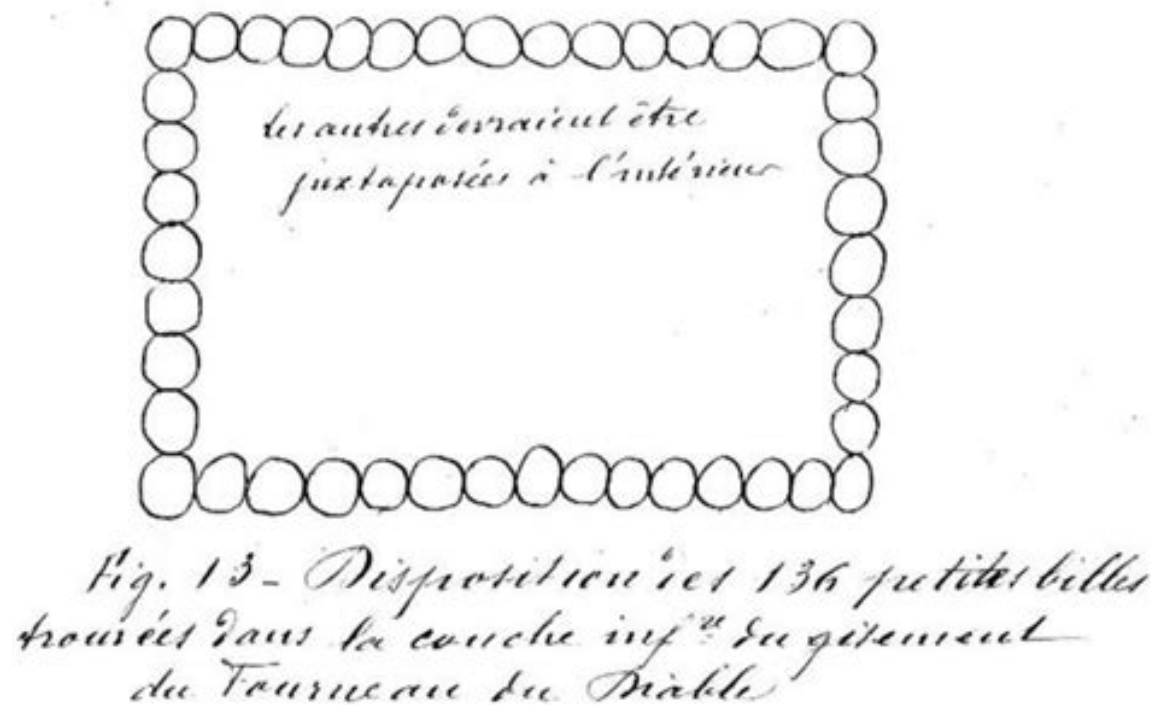 les autres devraient être
juxtaposées à l'intérieur
Fig. 13 - Disposition des 136 petites billes
trouvées dans la couche inf.re du gisement
du Fourneau du Diable